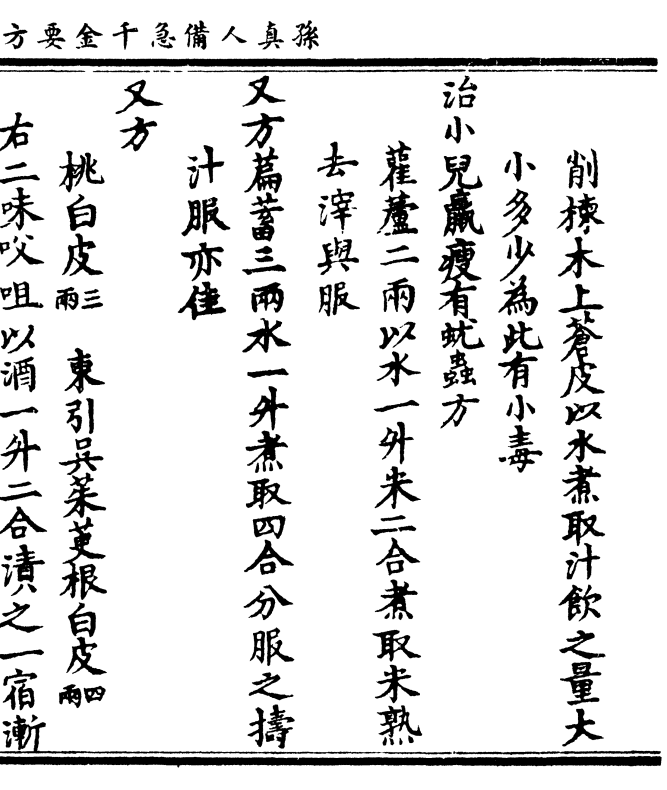 孫真人備急千金要方
削楝木上蒼皮以水煮取汁飲之量大
小多少為此有小毒
治小兒羸瘦有蚘蟲方
藋蘆二兩以水一升米二合煮取米熟
去滓與服
又方萹蓄三兩水一升煮取四合分服之擣
汁服亦佳
又方
桃白皮三兩 東引吳茱萸根白皮四兩
右二味㕮咀以酒一升二合漬之一宿漸